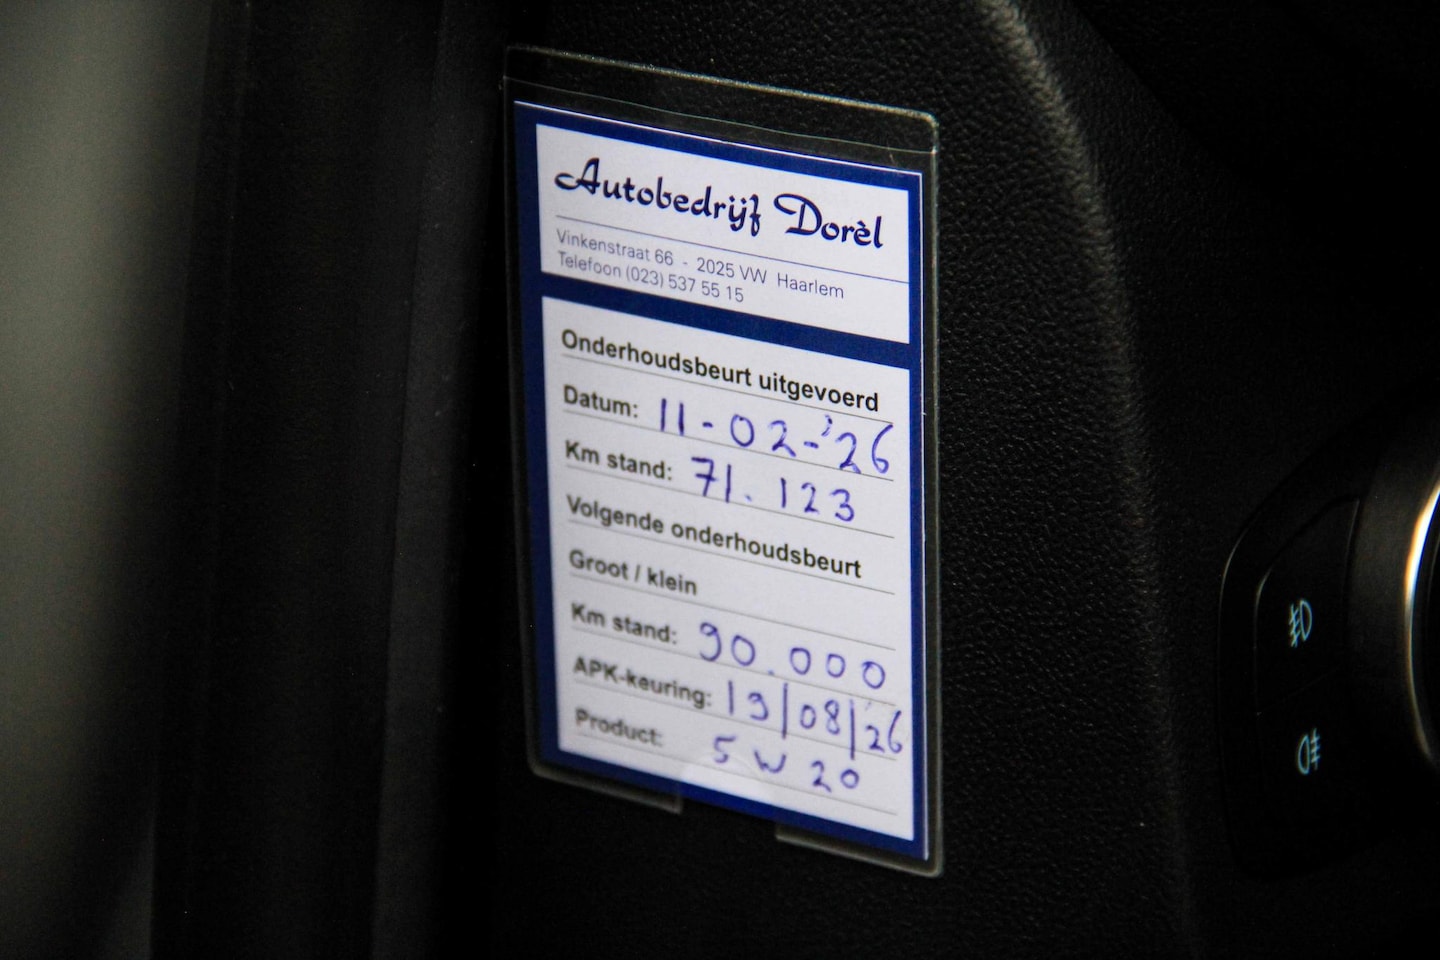 Autobedrijf Dorèl
Vinkenstraat 66 - 2025 VW Haarlem
Telefoon (023) 537 55 15
Onderhoudsbeurt uitgevoerd
Datum: 11-02-'26
Km stand: 71.123
Volgende onderhoudsbeurt
Groot / klein
Km stand: 90.000
APK-keuring: 13/08/'26
Product: 5 W 20